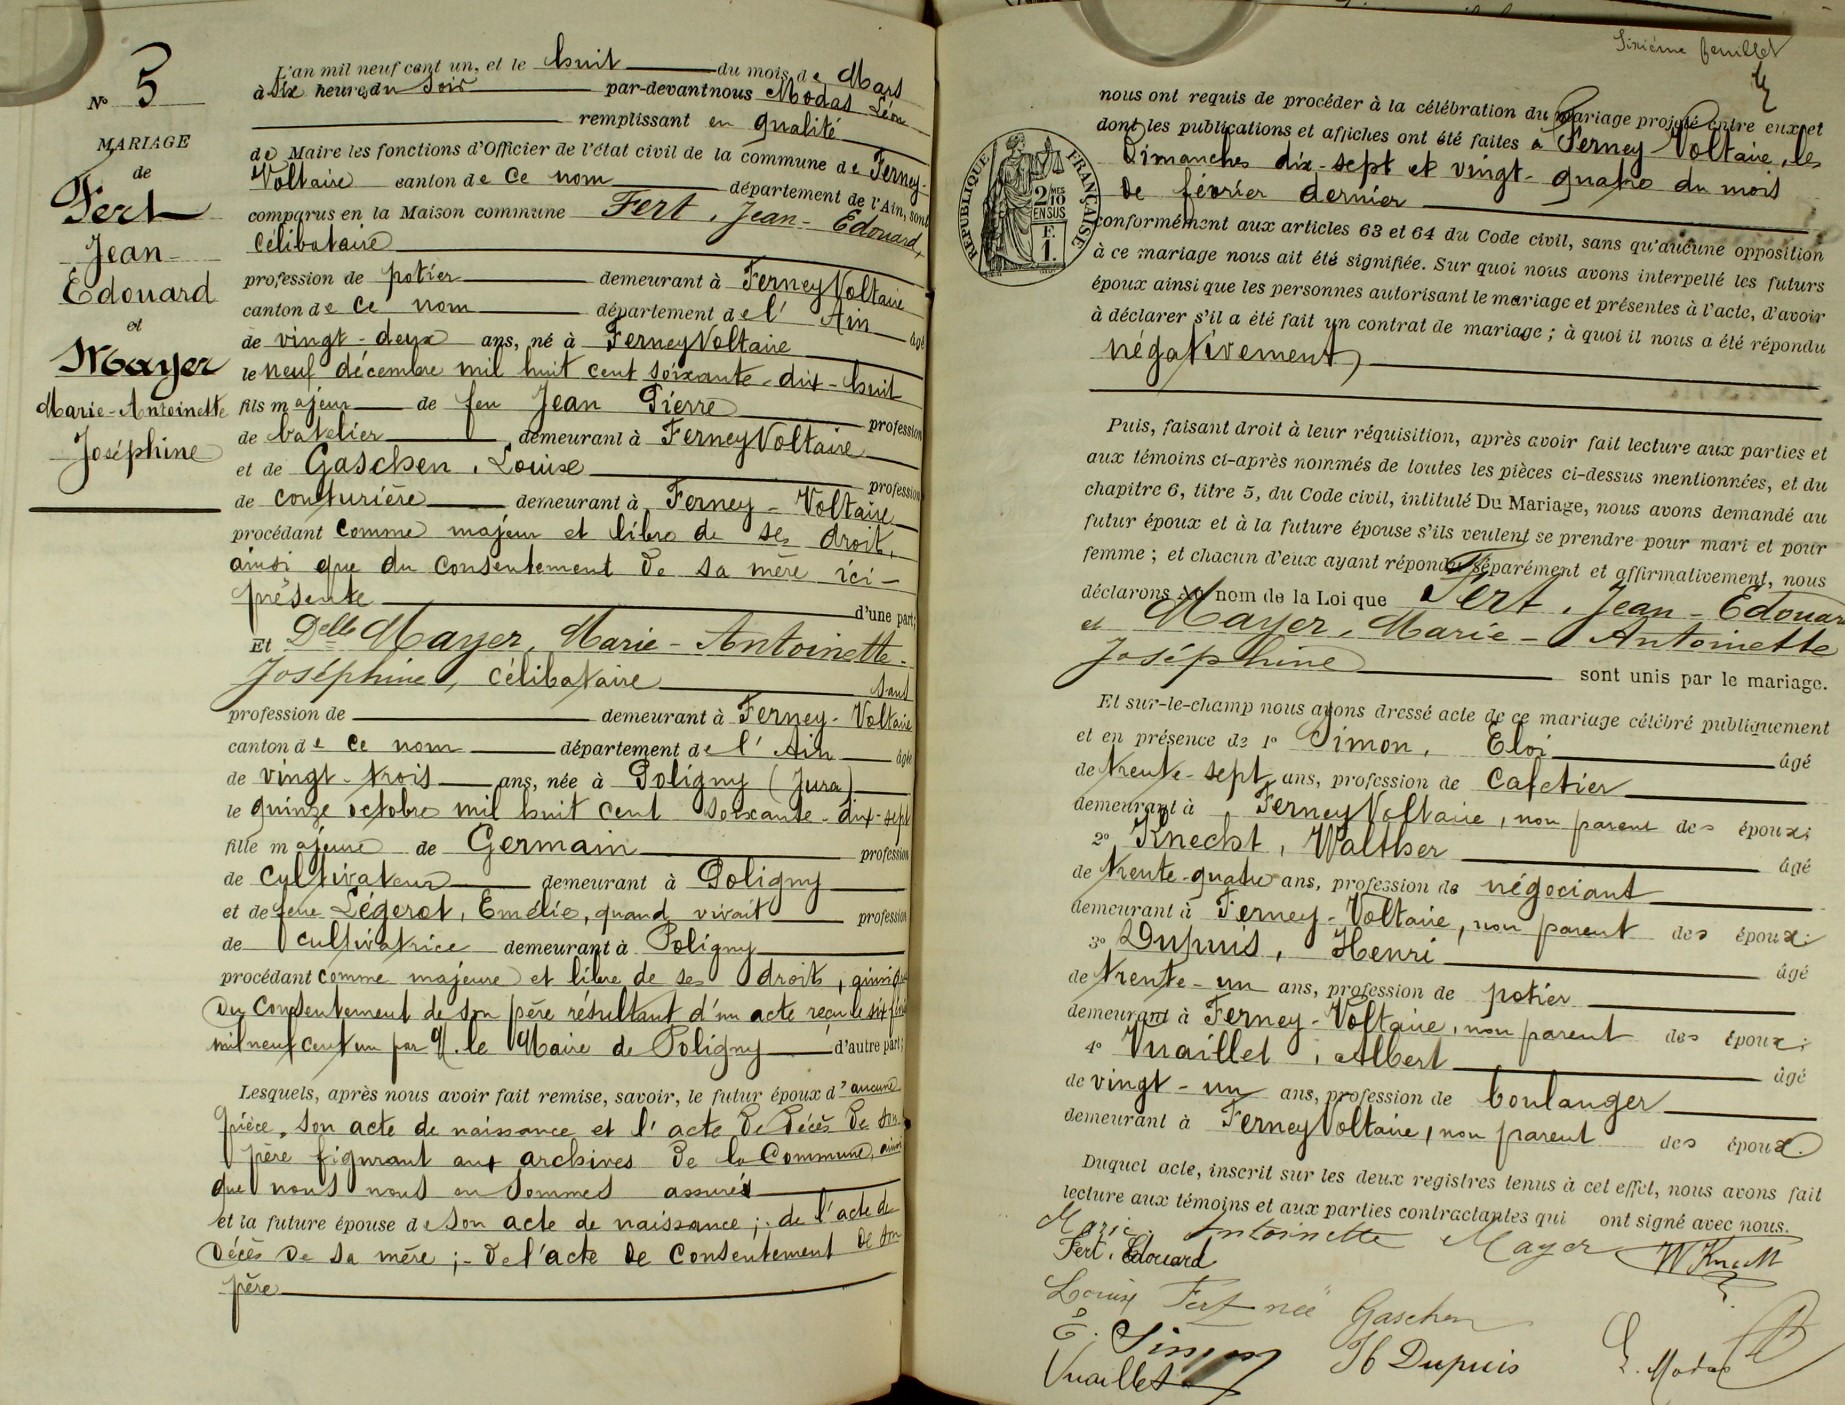 N° 5
MARIAGE
de
Fert
Jean-
Edouard
et
Mayer
Marie-Antoinette
Joséphine
L'an mil neuf cent un, et le huit du mois de Mars
à six heures du soir par-devant nous Modas Léon
remplissant en qualité
de Maire les fonctions d'Officier de l'état civil de la commune de Ferney-
Voltaire canton de ce nom département de l'Ain, sont
comparus en la Maison commune Fert, Jean-Edouard,
célibataire
profession de potier demeurant à Ferney Voltaire
canton de ce nom département de l'Ain âgé
de vingt-deux ans, né à Ferney Voltaire
le neuf décembre mil huit cent soixante-dix-huit
fils majeur de feu Jean Pierre profession
de batelier demeurant à Ferney Voltaire
et de Gaschen, Louise profession
de couturière demeurant à Ferney-Voltaire
procédant comme majeur et libre de ses droit,
ainsi que du consentement de sa mère ici-
présente d'une part;
Et Delle Mayer, Marie-Antoinette-
Joséphine, célibataire sans
profession de demeurant à Ferney-Voltaire
canton de ce nom département de l'Ain âgée
de vingt-trois ans, née à Poligny (Jura)
le quinze octobre mil huit cent soixante-dix-sept
fille majeure de Germain profession
de cultivateur demeurant à Poligny
et de feue Légerot, Emélie, quand vivait profession
de cultivatrice demeurant à Poligny
procédant comme majeure et libre de ses droits, ainsi que
du consentement de son père résultant d'un acte reçu le six
mil neuf cent un par M. le Maire de Poligny d'autre part;
Lesquels, après nous avoir fait remise, savoir, le futur époux d'aucune
pièce, son acte de naissance et l'acte de décès de son
père figurant aux archives de la Commune, ainsi
que nous nous en sommes assurés
et la future épouse de son acte de naissance ;- de l'acte de
décès de sa mère ;- de l'acte de consentement de son
père
Sixième feuillet
RÉPUBLIQUE FRANÇAISE
2/10
EN SUS
F.
1.
nous ont requis de procéder à la célébration du mariage projeté entre eux et
dont les publications et affiches ont été faites à Ferney Voltaire, les
Dimanches dix-sept et vingt-quatre du mois
de février dernier
conformément aux articles 63 et 64 du Code civil, sans qu'aucune opposition
à ce mariage nous ait été signifiée. Sur quoi nous avons interpellé les futurs
époux ainsi que les personnes autorisant le mariage et présentes à l'acte, d'avoir
à déclarer s'il a été fait un contrat de mariage ; à quoi il nous a été répondu
négativement
Puis, faisant droit à leur réquisition, après avoir fait lecture aux parties et
aux témoins ci-après nommés de toutes les pièces ci-dessus mentionnées, et du
chapitre 6, titre 5, du Code civil, intitulé Du Mariage, nous avons demandé au
futur époux et à la future épouse s'ils veulent se prendre pour mari et pour
femme ; et chacun d'eux ayant répondu séparément et affirmativement, nous
déclarons au nom de la Loi que Fert, Jean-Edouard
et Mayer, Marie-Antoinette
Joséphine sont unis par le mariage.
Et sur-le-champ nous avons dressé acte de ce mariage célébré publiquement
et en présence de 1° Simon, Eloi âgé
de trente-sept ans, profession de cafetier
demeurant à Ferney Voltaire, non parent des époux;
2° Knecht, Walther âgé
de trente-quatre ans, profession de négociant
demeurant à Ferney-Voltaire, non parent des époux;
3° Dupuis, Henri âgé
de trente-un ans, profession de potier
demeurant à Ferney-Voltaire, non parent des époux;
4° Vuaillet, Albert âgé
de vingt-un ans, profession de boulanger
demeurant à Ferney Voltaire, non parent des époux.
Duquel acte, inscrit sur les deux registres tenus à cet effet, nous avons fait
lecture aux témoins et aux parties contractantes qui ont signé avec nous.
Marie Antoinette Mayer W Knecht
Fert, Edouard
Louise Fert née Gaschen
E. Simon H Dupuis L. Modas
Vuaillet